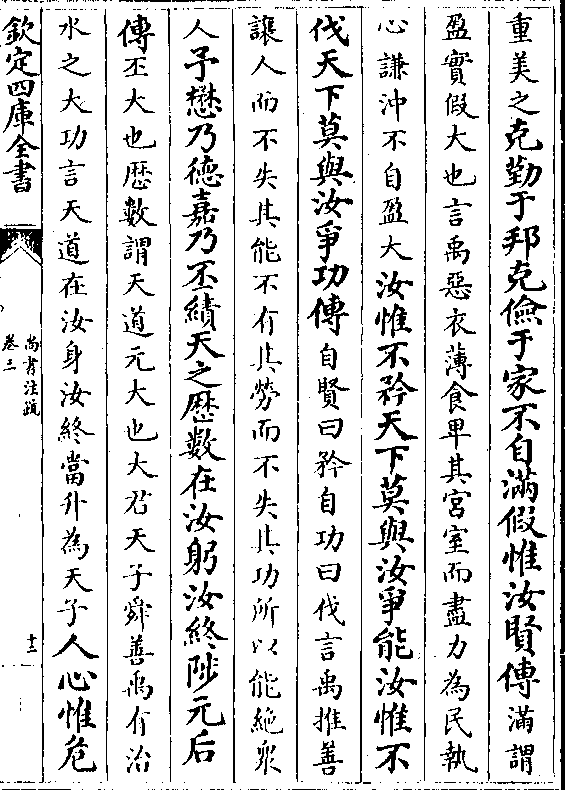 重美之克勤于邦克儉于家不自滿假惟汝賢傳滿謂
盈實假大也言禹惡衣薄食卑其宮室而盡力為民執
心謙沖不自盈大汝惟不矜天下莫與汝爭能汝惟不
伐天下莫與汝爭功傳自賢曰矜自功曰伐言禹推善
讓人而不失其能不有其勞而不失其功所以能絶衆
人予懋乃德嘉乃丕績天之厯數在汝躬汝終陟元后
傳丕大也厯數謂天道元大也大君天子舜善禹有治
水之大功言天道在汝身汝終當升為天子人心惟危
欽定四庫全書
尚書注疏
卷三
十三